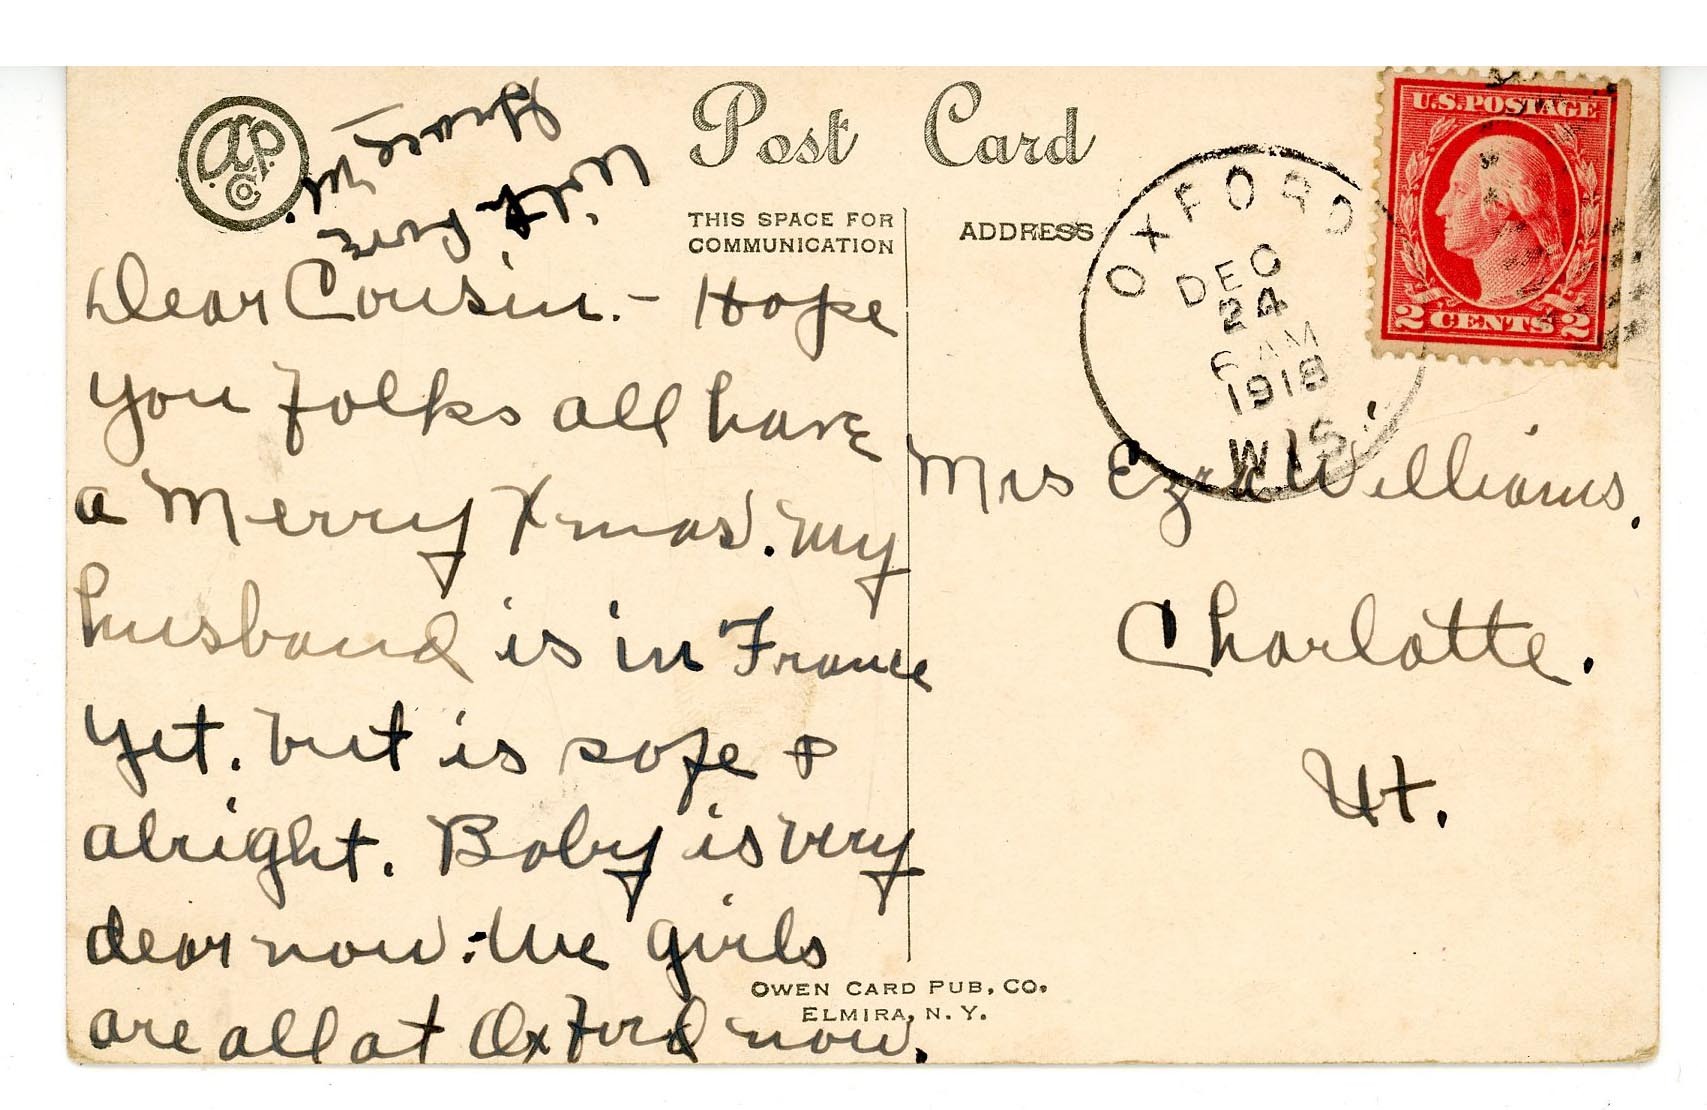 Post Card
THIS SPACE FOR
COMMUNICATION
ADDRESS
U.S. POSTAGE
2 CENTS 2
OXFORD
DEC
24
6 AM
1918
WIS.
Dear Cousin. - Hope
you folks all have
a Merry Xmas. My
husband is in France
yet. but is safe &
alright. Baby is very
dear now. We girls
are all at Oxford now.
With love
Grace
Mrs Ezra Williams.
Charlotte.
Vt.
OWEN CARD PUB. CO.
ELMIRA, N. Y.